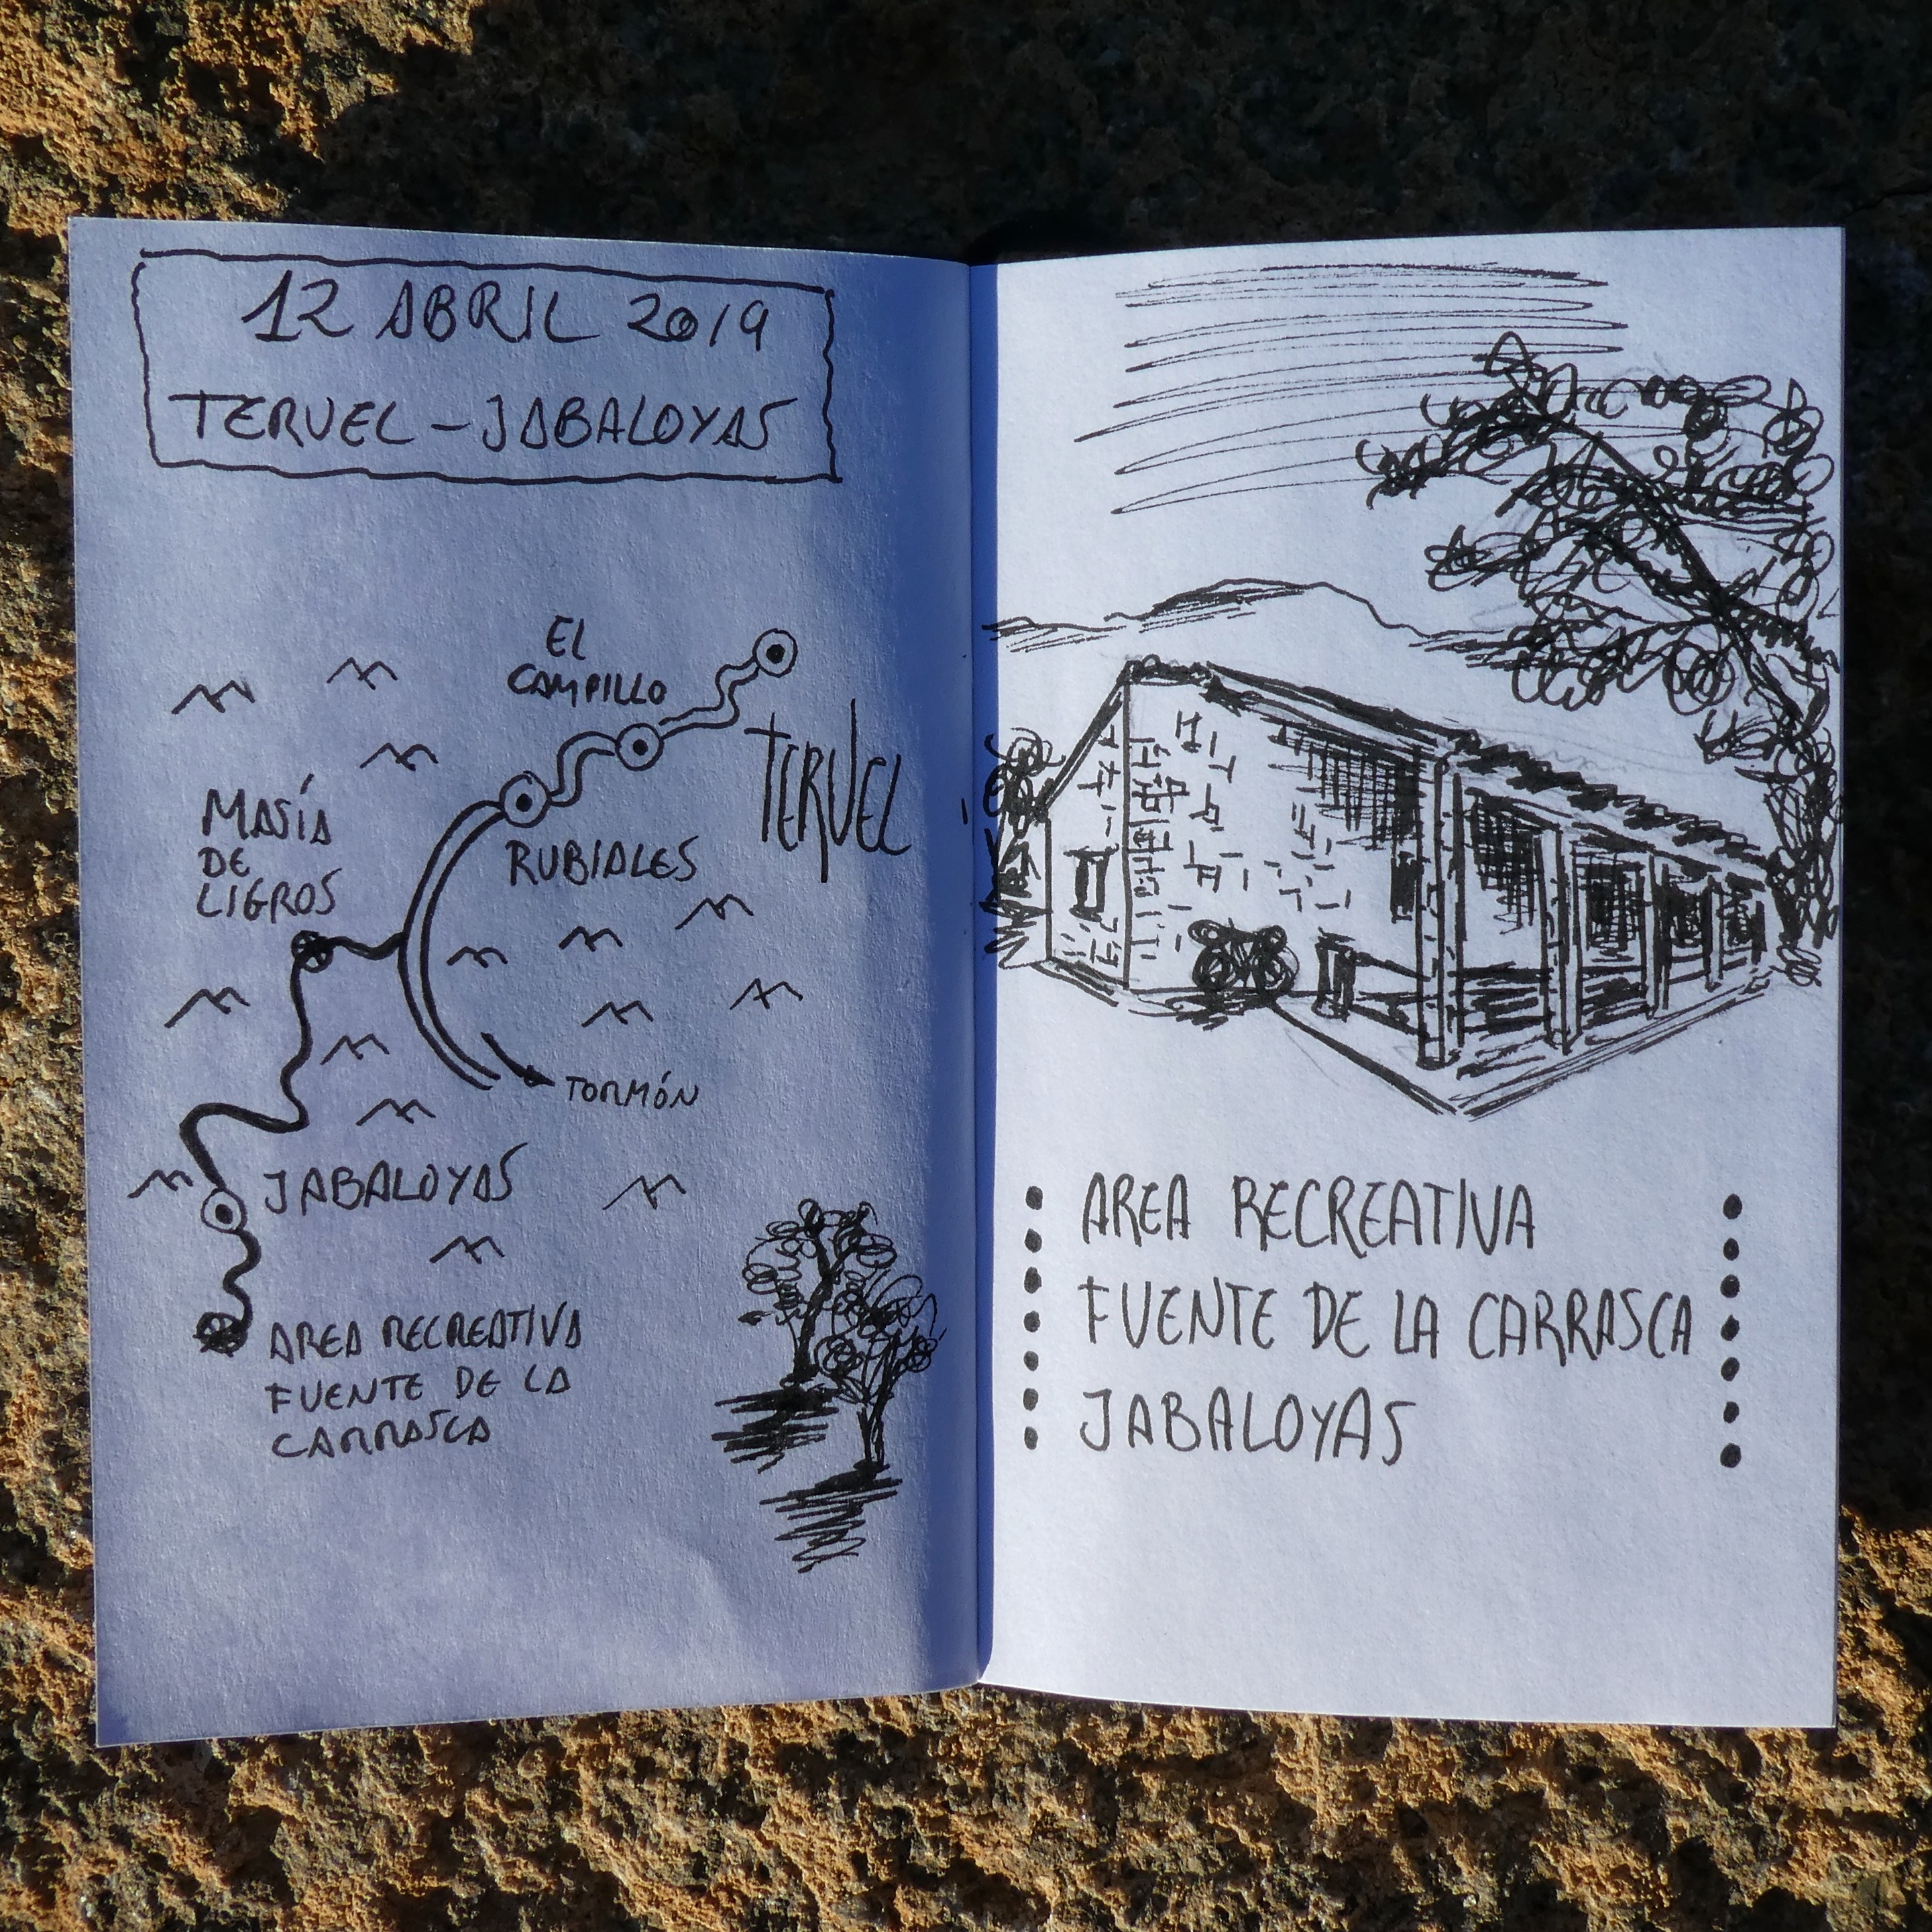 12 ABRIL 2019
TERUEL - JABALOYAS
EL
CAMPILLO
TERUEL
RUBIALES
MASÍA
DE
LIGROS
TORMÓN
JABALOYAS
AREA RECREATIVA
FUENTE DE LA
CARRASCA
AREA RECREATIVA
FUENTE DE LA CARRASCA
JABALOYAS